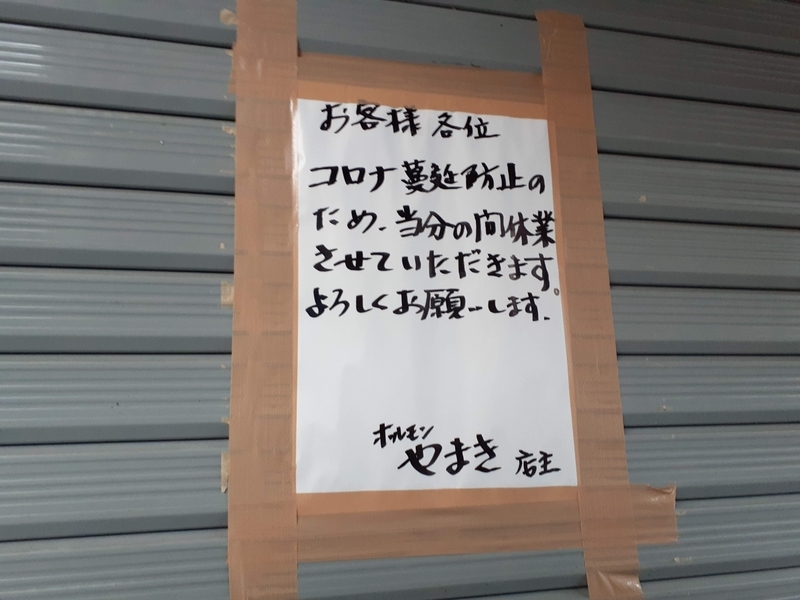 お客様各位
コロナ蔓延防止の
ため、当分の間休業
させていただきます。
よろしくお願いします。
ホルモン
やまき 店主